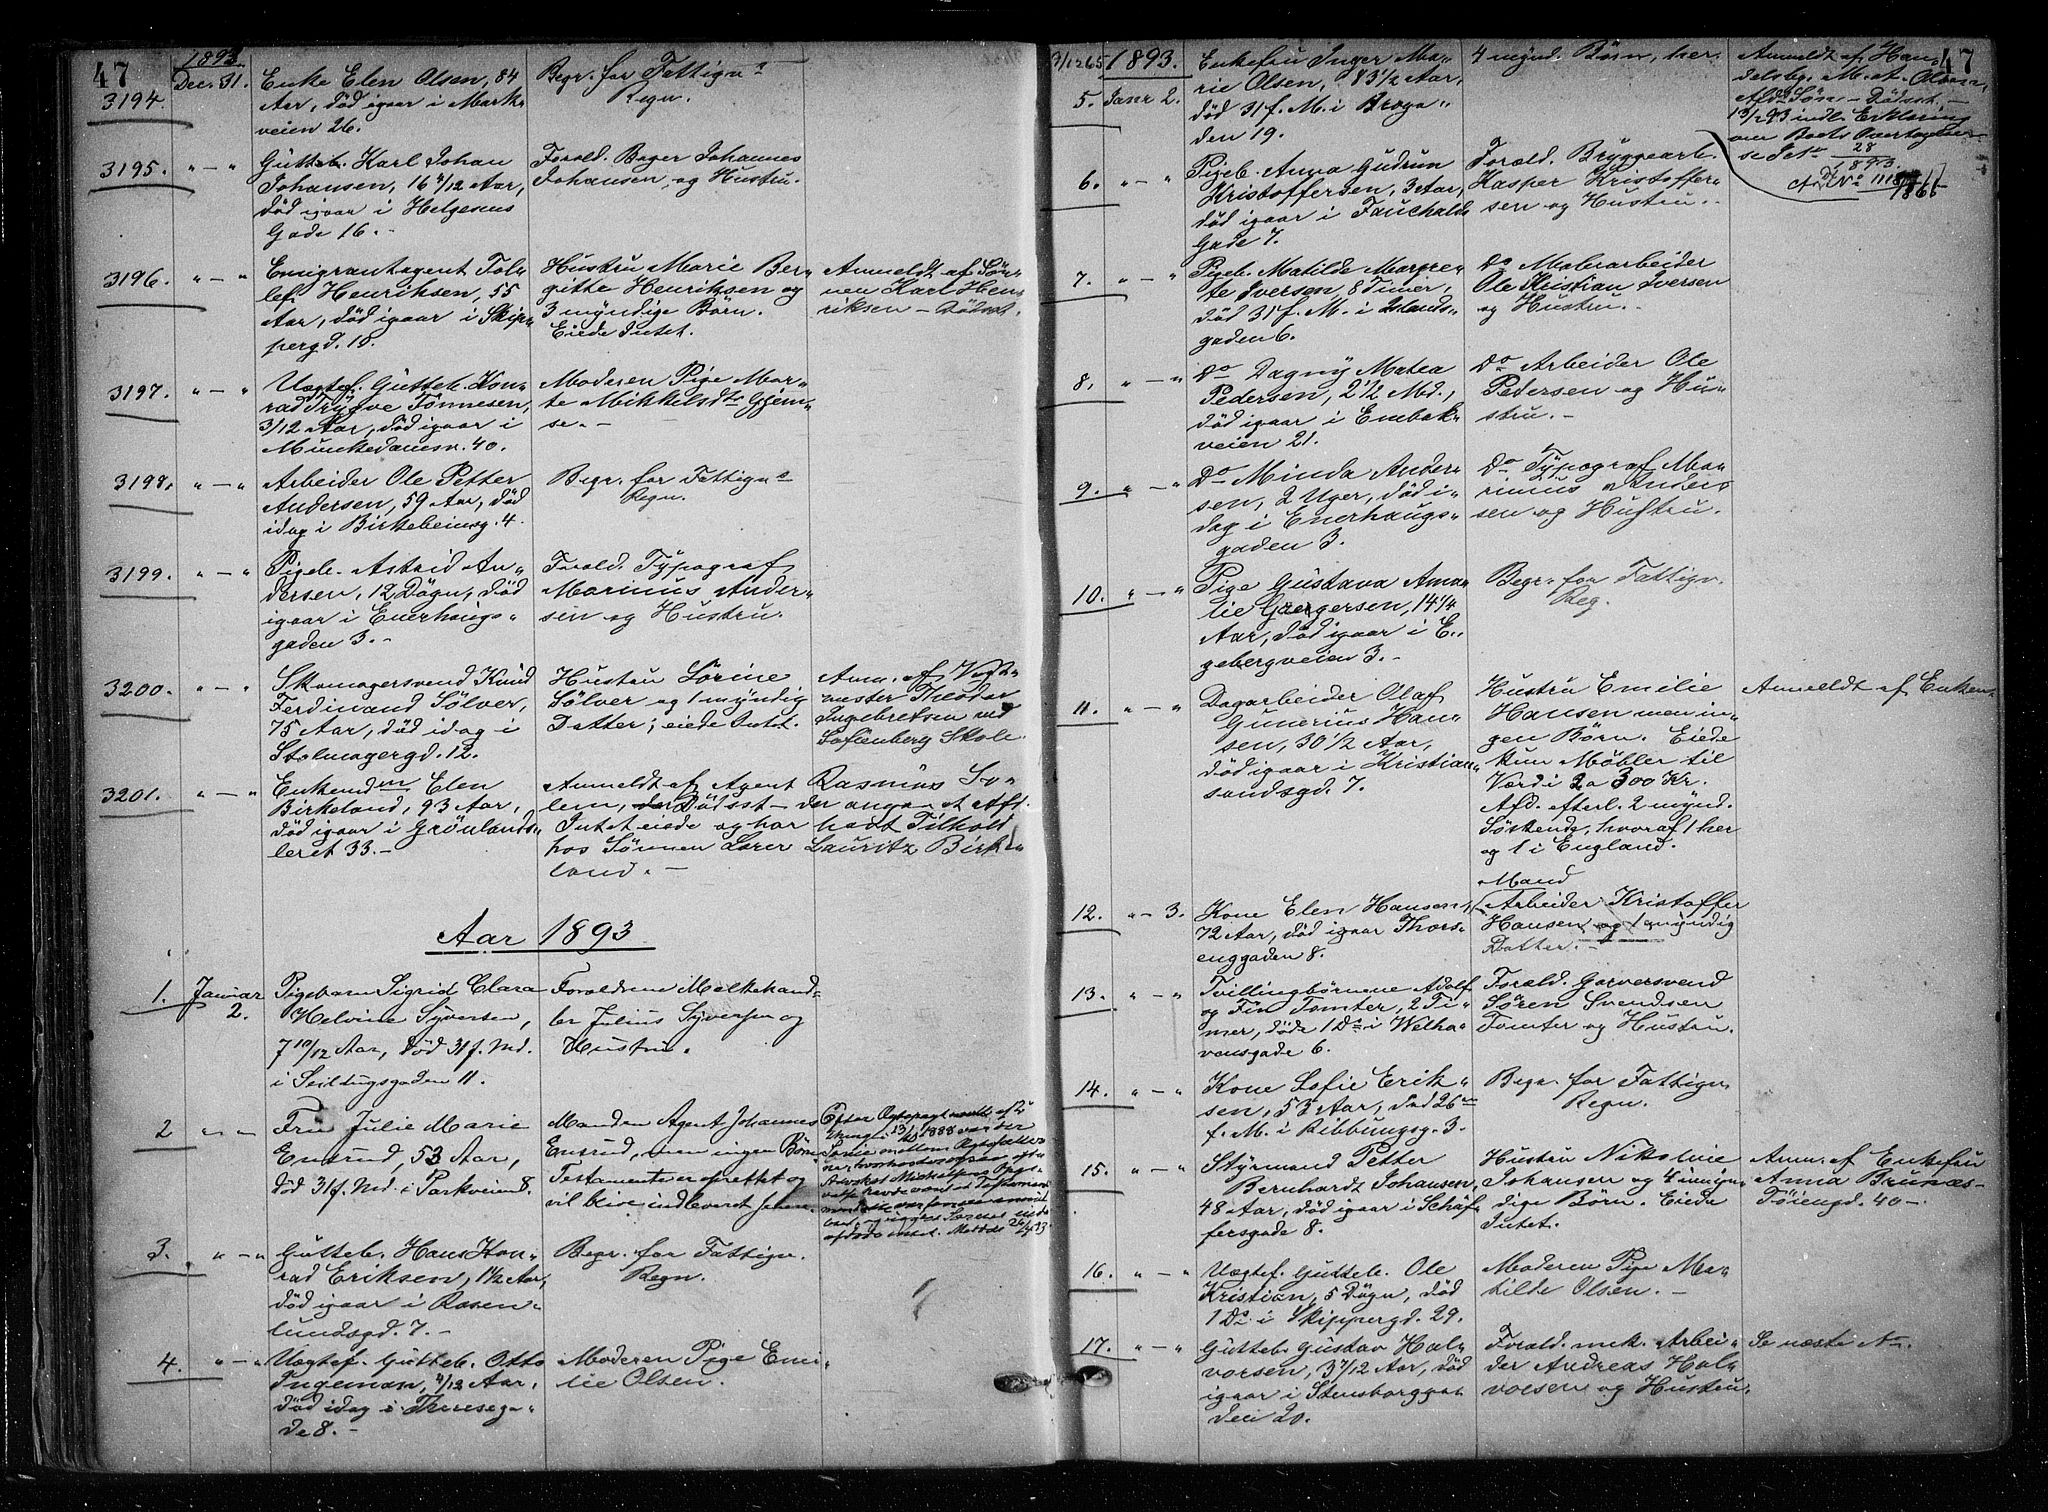 47
1892
3194. Dec. 31. Enke Elen Olsen, 84
Aar, död igaar i Mark-
veien 26.
Begr. for Fattigv.s
Regn.
3195. " - " Gutteb. Karl Johan
Johansen, 16 4/12 Aar,
död igaar i Helgesens
Gade 16. -
Forald. Bager Johannes
Johansen, og Hustru.
3196. " - " Emigrantagent Tol-
lef Henriksen, 55
Aar, död igaar i Skip-
pergd. 18.
Hustru Marie Ber-
gitte Henriksen og
3 myndige Börn.
Eiede Intet.
Anmeldt af Søn-
nen Karl Hen-
riksen - Dödsst.
3197. " - " Uægtef. Gutteb. Kon-
rad Trygve Tönnesen,
3/12 Aar, död igaar i
Munkedamsv. 40.
Moderen Pige Mar-
te Mikkelsdtr Gjem-
se. -
3198. " - " Arbeider Ole Petter
Andersen, 59 Aar, död
idag i Birkebeinerg. 4.
Begr. for Fattigv.s
Regn.
3199. " - " Pigeb. Astrid An-
dersen, 12 Dögn, död
igaar i Enerhaugs-
gaden 3. -
Forald. Typograf
Marinus Ander-
sen og Hustru.
3200. " - " Skomagersvend Knud
Ferdinand Sölver,
75 Aar, död idag i
Stolmagergd. 12.
Hustru Sörine
Sölver og 1 myndig
Datter; eiede Intet.
Anm. af Vagt-
mester Theodor
Ingebretsen ved
Sofienberg Skole.
3201. " - " Enkemdm Elen
Birkeland, 93 Aar,
död igaar i Grönlands-
leret 33. -
Anmeldt af Agent Rasmus So-
lem, Dödsst - der angav at Afd.
Intet eiede og har havt Tilhold
hos Sönnen Lauritz Birke-
land. -
Aar 1893
1. Januar 2. Pigebarn Sigrid Clara
Helvine Syversen,
7 10/12 Aar, död 31 f. Md.
i Seildugsgaden 11.
Foraldrene Melkehand-
ler Julius Syversen og
Hustru.
2 " - " Fru Julie Marie
Ensrud, 53 Aar,
död 31 f. Md. i Parkveien 8.
Manden Agent Johannes
Ensrud, men ingen Börn.
Testamente er oprettet og
vil blive indleveret
3. " - " Gutteb. Hans Kon-
rad Eriksen, 1 1/2 Aar,
död igaar i Rosen-
lundsgd. 7. -
Begr. for Fattigv.
Regn.
4. " - " Uægtef. Gutteb. Otto
Ingeman, 4/12 Aar,
död idag i Theresega-
de 8. -
Moderen Pige Emi-
lie Olsen.
47
1893.
5. Janr 2. Enkefru Inger Ma-
rie Olsen, 83 1/2 Aar,
död 31 f. M. i Broga-
den 19.
4 mynd. Börn, her.
Anmeldt af Han-
delsbg. M. A. Olsen,
Afd. Søn - Dödsst. -
13/2 93 indl. Erklæring
om Boets Overtagel-
se
28
1893.
6. " - " Pigeb. Anna Gudrun
Kristoffersen, 3 Aar,
död igaar i Fauchalds
Gade 7.
Forald. Bryggearb.
Kasper Kristoffer-
sen og Hustru.
7. " - " Pigeb. Matilde Margre-
te Iversen, 8 Timer,
död 31 f. M. i Islands-
gaden 6.
Do Malerarbeider
Ole Kristian Iversen
og Hustru. -
8. " - " Do Dagny Matea
Pedersen, 2 1/2 Md.,
död igaar i Enebak-
veien 21.
Do Arbeider Ole
Pedersen og Hu-
stru. -
9. " - " Do Minda Ander-
sen, 2 Uger, död i-
dag i Enerhaugs-
gaden 3.
Do Typograf Ma-
rinius Ander-
sen og Hustru.
10. " - " Pige Gustava Ama-
lie Gregersen, 14 1/4
Aar, död igaar i E-
gebergveien 3. -
Begr. for Fattigv.
Reg.
11. " - " Dagarbeider Olaf
Gunerius Han-
sen, 30 1/2 Aar,
död igaar i Kristian-
sandsgd. 7.
Hustru Emilie
Hansen men in-
gen Börn. Eiede
kun Möbler til
Værdi 2 a 300 Kr.
Afd. efterl. 2 mynd.
Söskende, hvoraf 1 her
og 1 i England.
Anmeldt af Enken.
12. " - 3. Kone Elen Hansen,
72 Aar, död igaar Thors-
enggaden 8.
Mand
Arbeider Kristoffer
Hansen og 1 myndig
Datter. -
13. " - " Tvillingbörnene Adolf
og Fin Tomter, 2 Ti-
mer, döde 1 Ds i Welha-
vensgade 6.
Forald. Garversvend
Sören Svendsen
Tomter og Hustru.
14. " - " Kone Sofie Erik-
sen, 53 Aar, död 26
f. M. i Ribbungsg. 3.
Begr. for Fattigv.
Regn.
15. " - " Styrmand Petter
Bernhardt Johansen,
48 Aar, död igaar i Schäf-
fersgade 8.
Hustru Nikoline
Johansen og 4 umyn-
dige Börn. Eiede
Intet.
Anm. af Enkefru
Anna Brunæs -
Töiengd. 40 -.
16. " - " Uægtef. Gutteb. Ole
Kristian, 5 Dögn, död
1 Ds. i Skippergd. 29.
Moderen Pige Ma-
tilde Olsen. -
17. " - " Gutteb. Gustav Hal-
vorsen, 3 7/12 Aar, död
igaar i Stensborgga-
den 20.
Forald. mek. Arbei-
der Andreas Hal-
vorsen og Hustru.
Se næste No.